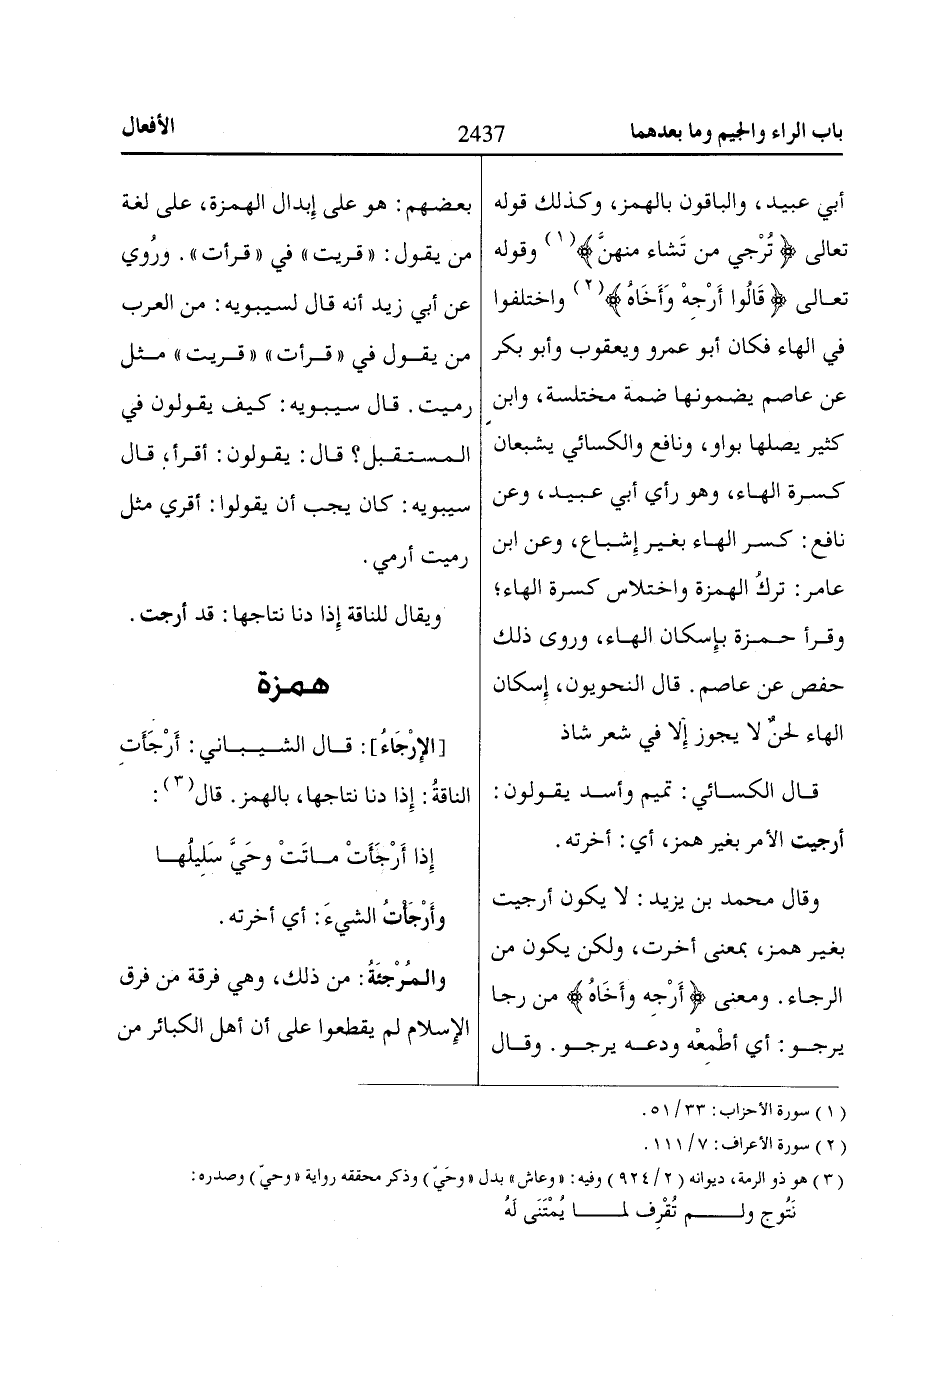 باب الراء والجيم وما بعدهما
2437
الأفعال
أبي عبيد، والباقون بالهمز، وكذلك قوله
تعالى ﴿تُرْجي من تَشاء منهنَّ﴾(١) وقوله
تعالى ﴿قَالُوا أَرْجِهْ وَأَخَاهُ﴾(٢) واختلفوا
في الهاء فكان أبو عمرو ويعقوب وأبو بكر
عن عاصم يضمونها ضمة مختلسة، وابن
كثير يصلها بواو، ونافع والكسائي يشبعان
كسرة الهاء، وهو رأي أبي عبيد، وعن
نافع: كسر الهاء بغير إشباع، وعن ابن
عامر: تركُ الهمزة واختلاس كسرة الهاء؛
وقرأ حمزة بإسكان الهاء، وروى ذلك
حفص عن عاصم. قال النحويون، إسكان
الهاء لحنٌ لا يجوز إلا في شعر شاذ
قال الكسائي: تميم وأسد يقولون:
أرجيت الأمر بغير همز، أي: أخرته.
وقال محمد بن يزيد: لا يكون أرجيت
بغير همز، بمعنى أخرت، ولكن يكون من
الرجاء. ومعنى ﴿أَرْجِه وأَخَاهُ﴾ من رجا
يرجو: أي أطْمِعْه ودعه يرجو. وقال
بعضهم: هو على إبدال الهمزة، على لغة
من يقول: «قريت» في «قرأت». ورُوي
عن أبي زيد أنه قال لسيبويه: من العرب
من يقول في «قرأت» «قريت» مثل
رميت. قال سيبويه: كيف يقولون في
المستقبل؟ قال: يقولون: أقرأ، قال
سيبويه: كان يجب أن يقولوا: أقري مثل
رميت أرمي.
ويقال للناقة إذا دنا نتاجها: قد أرجت.
همزة
[الإرْجَاءُ]: قال الشيباني: أَرْجَأَتِ
الناقةُ: إذا دنا نتاجها، بالهمز. قال(٣):
إذا أَرْجَأَتْ ماتَتْ وحَيَّ سَلِيلُها
وأَرْجَأْتُ الشيءَ: أي أخرته.
والمُرْجِئَةُ: من ذلك، وهي فرقة من فرق
الإسلام لم يقطعوا على أن أهل الكبائر من
(١) سورة الأحزاب: ٣٣/٥١.
(٢) سورة الأعراف: ٧/١١١.
(٣) هو ذو الرمة، ديوانه (٢/٩٢٤) وفيه: «وعاش» بدل «وحَيّ) وذكر محققه رواية «وحيّ) وصدره:
نَتُوج ولم تُقْرِف لما يُمْتَنَى لَهُ